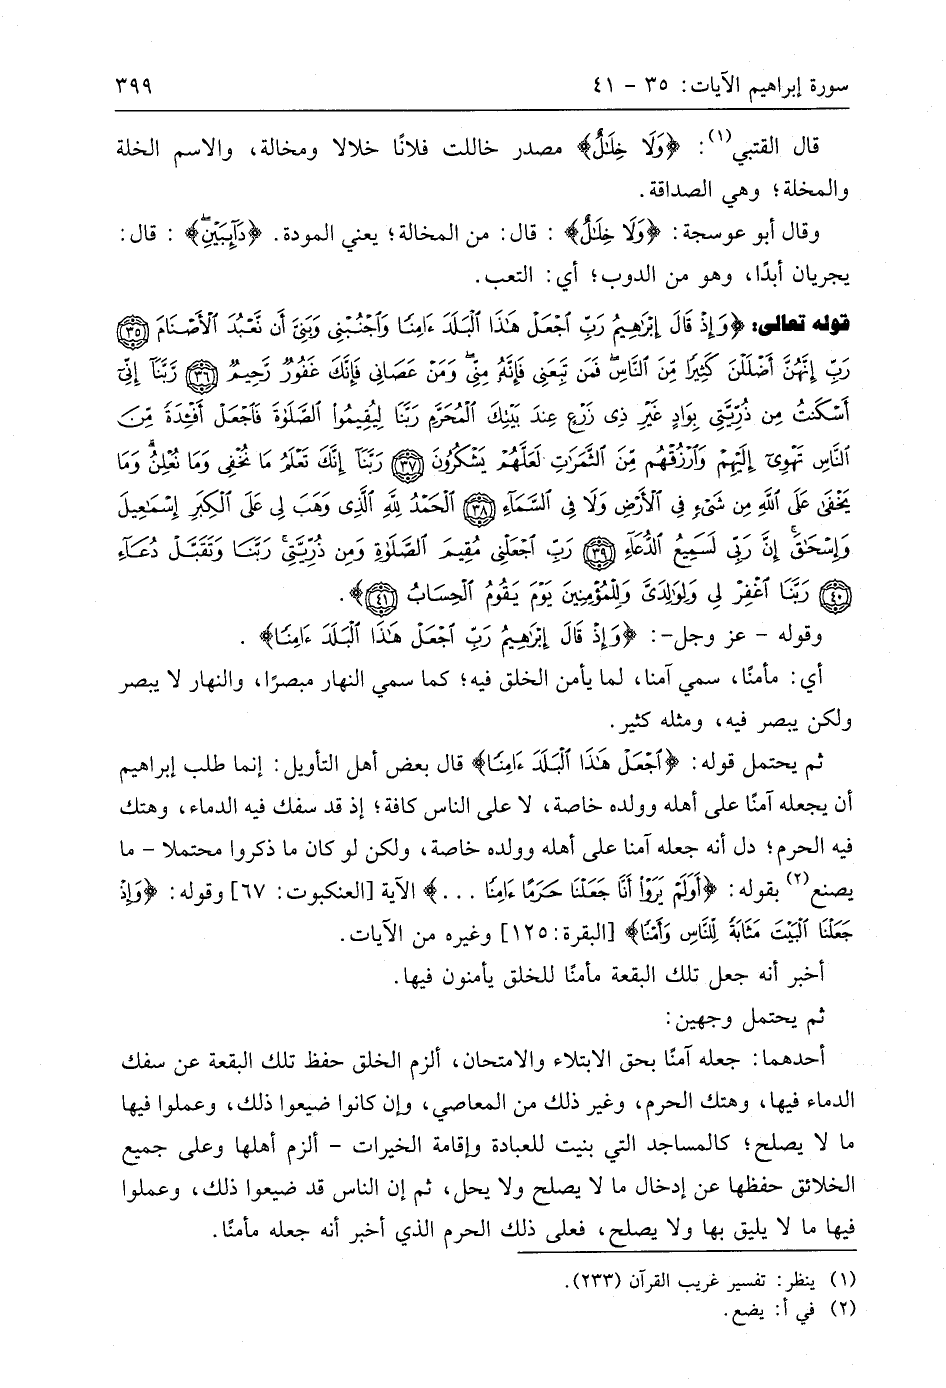 سورة إبراهيم الآيات: ٣٥ - ٤١ ٣٩٩
قال القتبي(١): ﴿وَلَا خِلَٰلٌ﴾ مصدر خاللت فلانًا خلالا ومخالة، والاسم الخلة
والمخلة؛ وهي الصداقة.
وقال أبو عوسجة: ﴿وَلَا خِلَٰلٌ﴾ : قال: من المخالة؛ يعني المودة. ﴿دَآئِبَيْنِۖ﴾ : قال:
يجريان أبدًا، وهو من الدوب؛ أي: التعب.
قوله تعالى: ﴿وَإِذْ قَالَ إِبْرَٰهِيمُ رَبِّ ٱجْعَلْ هَٰذَا ٱلْبَلَدَ ءَامِنًا وَٱجْنُبْنِى وَبَنِىَّ أَن نَّعْبُدَ ٱلْأَصْنَامَ ٣٥
رَبِّ إِنَّهُنَّ أَضْلَلْنَ كَثِيرًا مِّنَ ٱلنَّاسِۖ فَمَن تَبِعَنِى فَإِنَّهُۥ مِنِّىۖ وَمَنْ عَصَانِى فَإِنَّكَ غَفُورٌ رَّحِيمٌ ٣٦ رَّبَّنَآ إِنِّىٓ
أَسْكَنتُ مِن ذُرِّيَّتِى بِوَادٍ غَيْرِ ذِى زَرْعٍ عِندَ بَيْتِكَ ٱلْمُحَرَّمِ رَبَّنَا لِيُقِيمُوا۟ ٱلصَّلَوٰةَ فَٱجْعَلْ أَفْـِٔدَةً مِّنَ
ٱلنَّاسِ تَهْوِىٓ إِلَيْهِمْ وَٱرْزُقْهُم مِّنَ ٱلثَّمَرَٰتِ لَعَلَّهُمْ يَشْكُرُونَ ٣٧ رَبَّنَآ إِنَّكَ تَعْلَمُ مَا نُخْفِى وَمَا نُعْلِنُۗ وَمَا
يَخْفَىٰ عَلَى ٱللَّهِ مِن شَىْءٍ فِى ٱلْأَرْضِ وَلَا فِى ٱلسَّمَآءِ ٣٨ ٱلْحَمْدُ لِلَّهِ ٱلَّذِى وَهَبَ لِى عَلَى ٱلْكِبَرِ إِسْمَٰعِيلَ
وَإِسْحَٰقَۚ إِنَّ رَبِّى لَسَمِيعُ ٱلدُّعَآءِ ٣٩ رَبِّ ٱجْعَلْنِى مُقِيمَ ٱلصَّلَوٰةِ وَمِن ذُرِّيَّتِىۚ رَبَّنَا وَتَقَبَّلْ دُعَآءِ
٤٠ رَبَّنَا ٱغْفِرْ لِى وَلِوَٰلِدَىَّ وَلِلْمُؤْمِنِينَ يَوْمَ يَقُومُ ٱلْحِسَابُ ٤١﴾.
وقوله - عز وجل-: ﴿وَإِذْ قَالَ إِبْرَٰهِيمُ رَبِّ ٱجْعَلْ هَٰذَا ٱلْبَلَدَ ءَامِنًا﴾ .
أي: مأمنًا، سمي آمنا، لما يأمن الخلق فيه؛ كما سمي النهار مبصرًا، والنهار لا يبصر
ولكن يبصر فيه، ومثله كثير.
ثم يحتمل قوله: ﴿ٱجْعَلْ هَٰذَا ٱلْبَلَدَ ءَامِنًا﴾ قال بعض أهل التأويل: إنما طلب إبراهيم
أن يجعله آمنًا على أهله وولده خاصة، لا على الناس كافة؛ إذ قد سفك فيه الدماء، وهتك
فيه الحرم؛ دل أنه جعله آمنا على أهله وولده خاصة، ولكن لو كان ما ذكروا محتملا - ما
يصنع(٢) بقوله: ﴿أَوَلَمْ يَرَوْا۟ أَنَّا جَعَلْنَا حَرَمًا ءَامِنًا ...﴾ الآية [العنكبوت: ٦٧] وقوله: ﴿وَإِذْ
جَعَلْنَا ٱلْبَيْتَ مَثَابَةً لِّلنَّاسِ وَأَمْنًا﴾ [البقرة:١٢٥] وغيره من الآيات.
أخبر أنه جعل تلك البقعة مأمنًا للخلق يأمنون فيها.
ثم يحتمل وجهين:
أحدهما: جعله آمنًا بحق الابتلاء والامتحان، ألزم الخلق حفظ تلك البقعة عن سفك
الدماء فيها، وهتك الحرم، وغير ذلك من المعاصي، وإن كانوا ضيعوا ذلك، وعملوا فيها
ما لا يصلح؛ كالمساجد التي بنيت للعبادة وإقامة الخيرات - ألزم أهلها وعلى جميع
الخلائق حفظها عن إدخال ما لا يصلح ولا يحل، ثم إن الناس قد ضيعوا ذلك، وعملوا
فيها ما لا يليق بها ولا يصلح، فعلى ذلك الحرم الذي أخبر أنه جعله مأمنًا.
(١) ينظر: تفسير غريب القرآن (٢٣٣).
(٢) في أ: يضع.